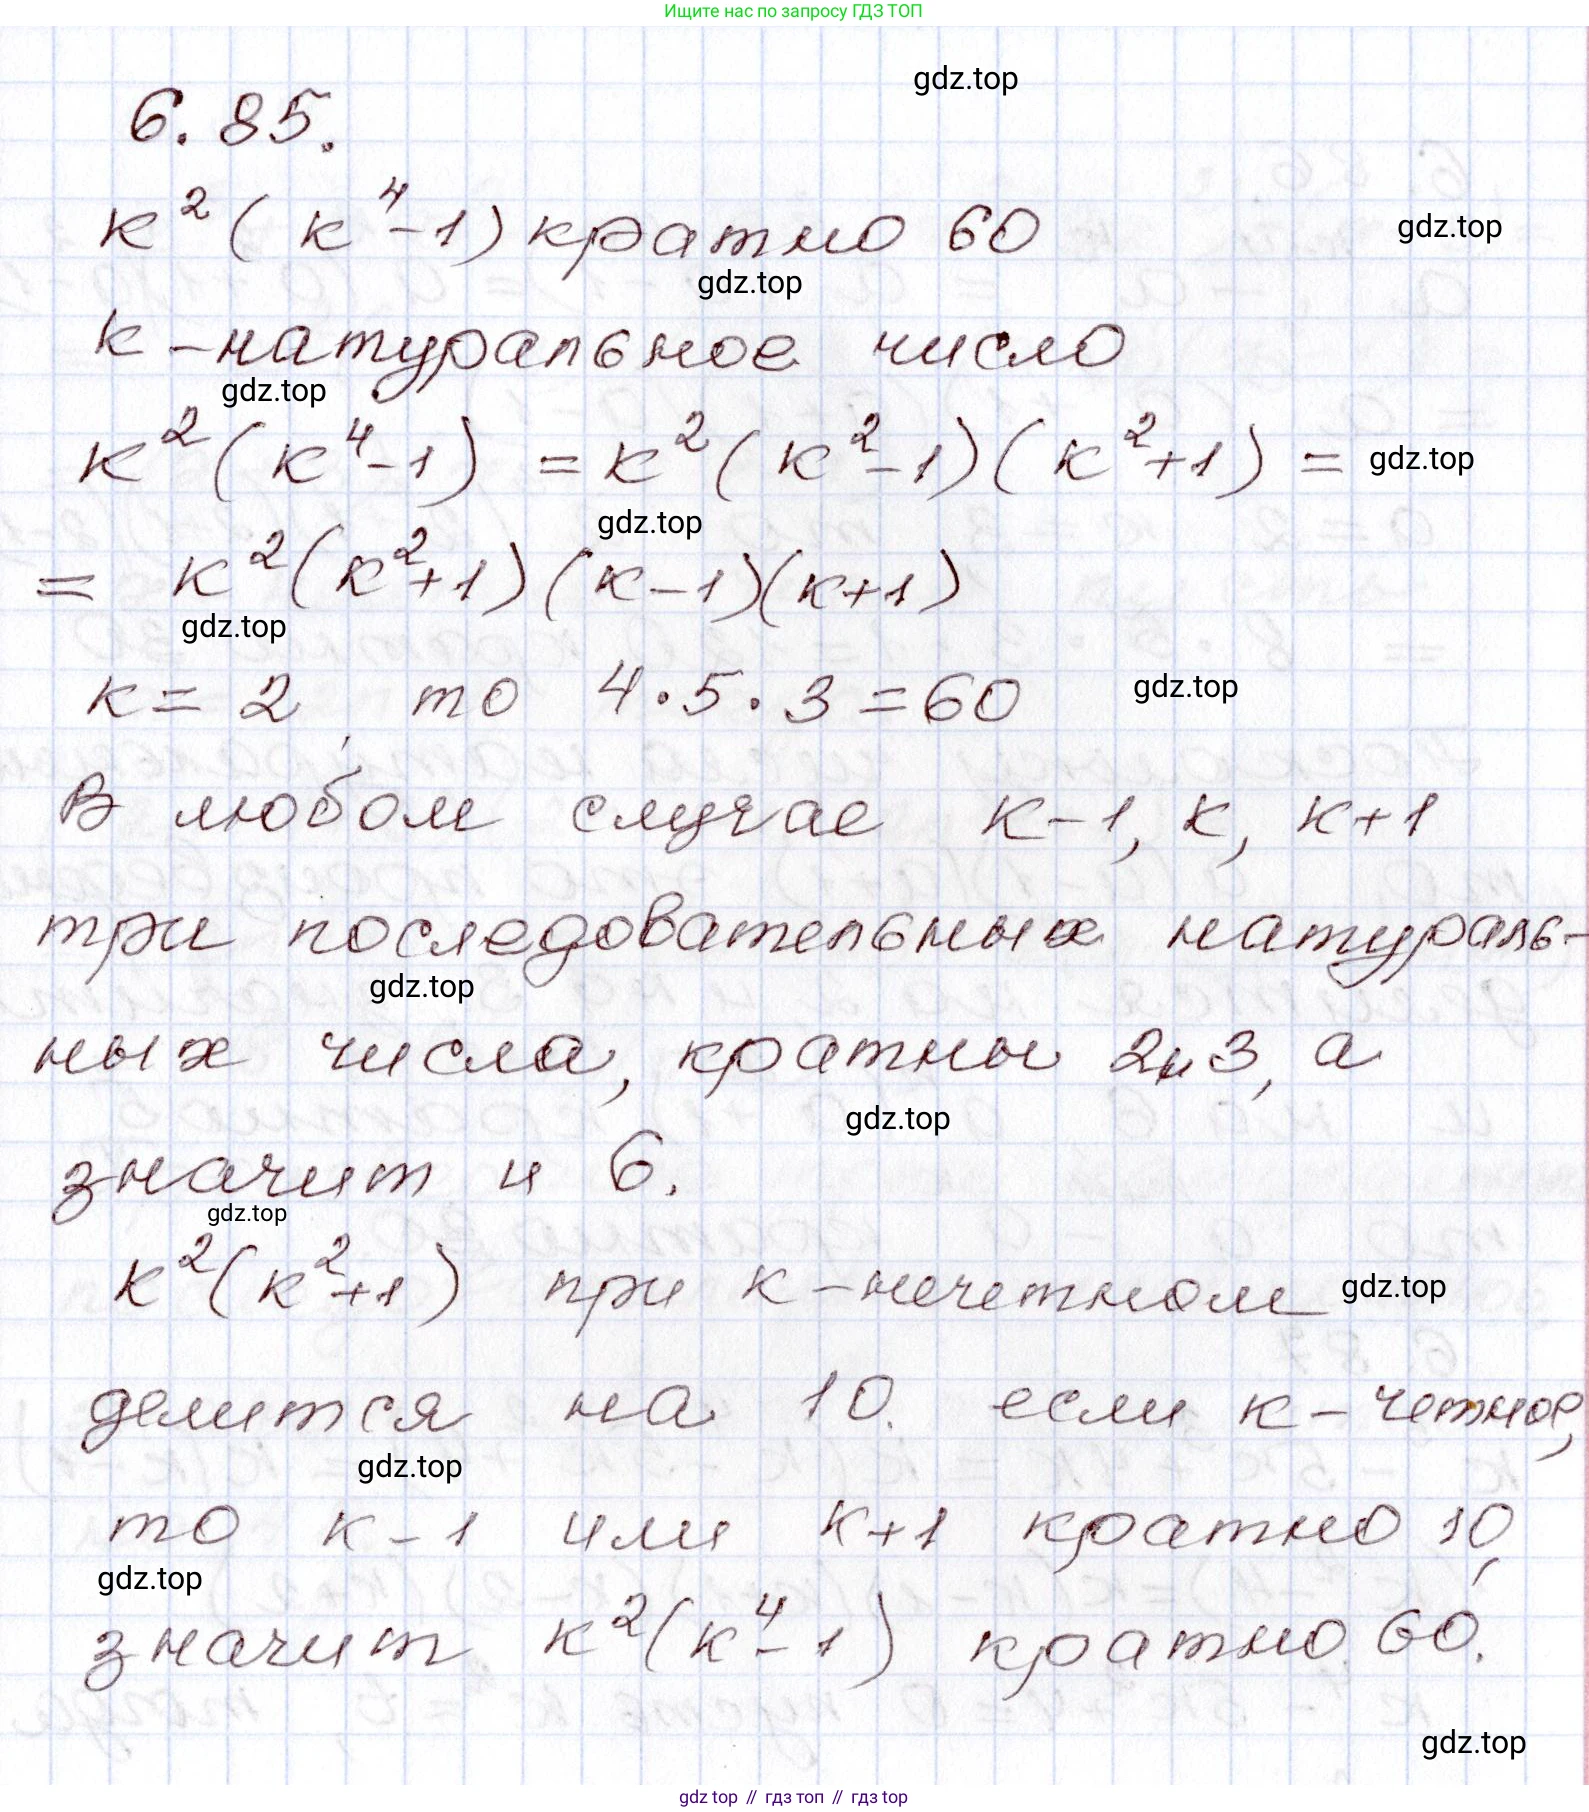 Ищите нас по запросу ГДЗ ТОП
gdz.top
6.85.
к²(к⁴-1) кратно 60
gdz.top
gdz.top
к - натуральное число
gdz.top
к²(к⁴-1) = к²(к²-1)(к²+1) =
gdz.top
gdz.top
= к²(к²+1)(к-1)(к+1)
gdz.top
к = 2 то 4·5·3 = 60
gdz.top
В любом случае к-1, к, к+1
три последовательных натураль-
gdz.top
ных числа, кратны 2и3, а
gdz.top
значит и 6.
gdz.top
к²(к²+1) при к - нечетном
gdz.top
делится на 10. если к - четное,
gdz.top
то к-1 или к+1 кратно 10,
gdz.top
значит к²(к⁴-1) кратно 60.
gdz.top
gdz top // гдз топ // gdz top